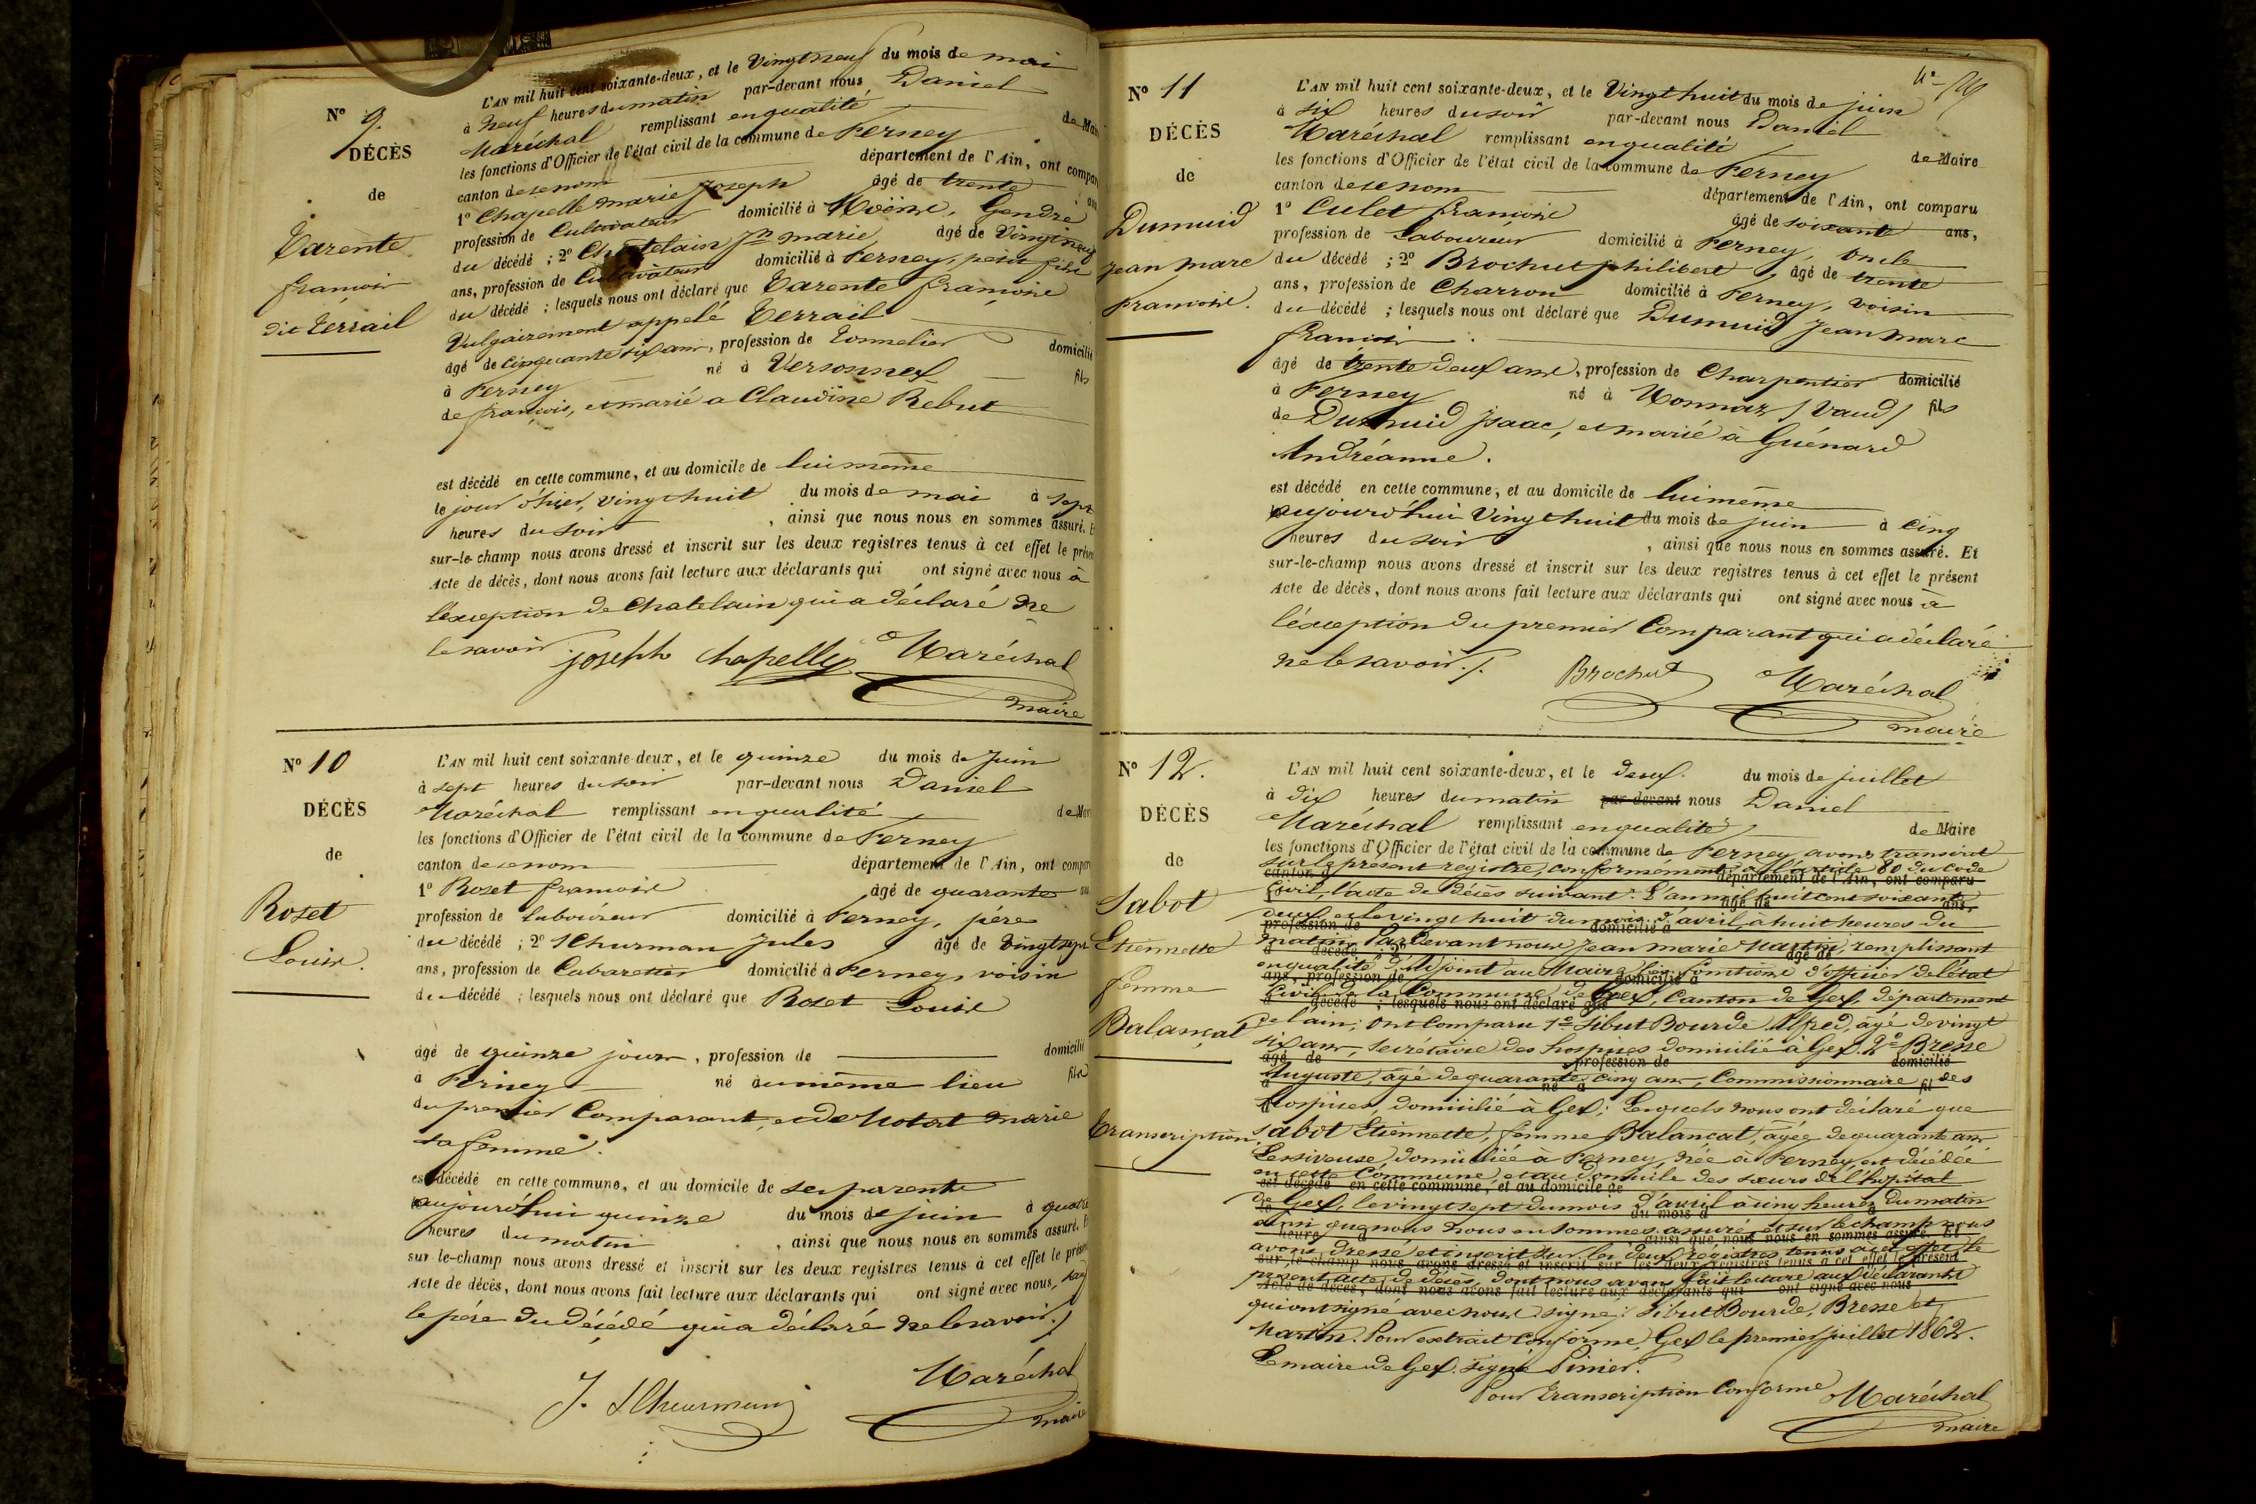 No 9.
DÉCÈS
de
Tarente
françois
dit Terrail
L'AN mil huit cent soixante-deux, et le Vingt neuf du mois de mai
à neuf heures du matin par-devant nous Daniel
Maréchal remplissant en qualité de Maire
les fonctions d'Officier de l'état civil de la commune de Ferney
canton de ce nom département de l'Ain, ont comparu
1o Chapelle marie Joseph âgé de trente ans
profession de Cultivateur domicilié à Moëns, Gendre
du décédé ; 2o Chatelain Jn marie âgé de Vingt neuf
ans, profession de Cultivateur domicilié à Ferney, petit fils
du décédé ; lesquels nous ont déclaré que Tarente françoise
Vulgairement appelé Terrail
âgé de cinquante six ans, profession de Tonnelier domicilié
à Ferney né à Versonnex fils
de françois, et marié a Claudine Rebut
est décédé en cette commune, et au domicile de lui même
le jour d'hier, vingt huit du mois de mai à sept
heures du soir , ainsi que nous nous en sommes assuré. Et
sur-le-champ nous avons dressé et inscrit sur les deux registres tenus à cet effet le présent
Acte de décès, dont nous avons fait lecture aux déclarants qui ont signé avec nous à
l'éxception de Chatelain qui a déclaré ne
le savoir
Joseph Chapelle Maréchal
maire
No 10
DÉCÈS
de
Roset
Louis.
L'AN mil huit cent soixante-deux, et le quinze du mois de Juin
à sept heures du soir par-devant nous Daniel
Maréchal remplissant en qualité de Maire
les fonctions d'Officier de l'état civil de la commune de Ferney
canton de ce nom département de l'Ain, ont comparu
1o Rozet françois âgé de quarante ans
profession de laboureur domicilié à Ferney, père
du décédé ; 2o Schurman Jules âgé de vingt sept
ans, profession de Cabaretier domicilié à Ferney, voisin
du décédé ; lesquels nous ont déclaré que Rozet Louis
âgé de quinze jours, profession de domicilié
à Ferney né au même lieu fils
du premier Comparant, et de marie
sa femme.
est décédé en cette commune, et au domicile de ses parents
aujourd'hui quinze du mois de juin à quatre
heures du matin , ainsi que nous nous en sommes assuré. Et
sur le-champ nous avons dressé et inscrit sur les deux registres tenus à cet effet le présent
Acte de décès, dont nous avons fait lecture aux déclarants qui ont signé avec nous,
le père du décédé qui a déclaré ne le savoir./.
J. Maréchal
maire
No 11
DÉCÈS
de
Dumuid
Jean marc
françois.
L'AN mil huit cent soixante-deux, et le Vingt huit du mois de juin
à six heures du soir par-devant nous Daniel
Maréchal remplissant en qualité de Maire
les fonctions d'Officier de l'état civil de la commune de Ferney
canton de ce nom département de l'Ain, ont comparu
1o Culet françois âgé de soixante ans,
profession de Laboureur domicilié à Ferney, oncle
du décédé ; 2o Brochut philibert, âgé de trente
ans, profession de Charron domicilié à Ferney, voisin
du décédé ; lesquels nous ont déclaré que Dumuid Jean marc
françois
âgé de trente deux ans, profession de Charpentier domicilié
à Ferney né à Monnaz (Vaud) fils
de Dumuid Isaac, et marié à Guénard
Andréanne.
est décédé en cette commune, et au domicile de lui même
aujourd'hui Vingt huit du mois de juin à cinq
heures du soir , ainsi que nous nous en sommes assuré. Et
sur-le-champ nous avons dressé et inscrit sur les deux registres tenus à cet effet le présent
Acte de décès, dont nous avons fait lecture aux déclarants qui ont signé avec nous à
l'éxception du premier Comparant qui a déclaré
ne le savoir./.
Brochut Maréchal
maire
No 12.
DÉCÈS
de
Sabot
Etiennette
femme
Balançat
transcription
L'AN mil huit cent soixante-deux, et le deux du mois de juillet
à dix heures du matin par-devant nous Daniel
Maréchal remplissant en qualité de Maire
les fonctions d'Officier de l'état civil de la commune de Ferney avons transcrit
sur le présent registre, conformément à l'article 80 du Code
Civil, l'acte de décès suivant: L'an mil huit cent soixante
deux et le vingt huit du mois d'avril, à huit heures du
matin, Pardevant nous Jean marie Martin, remplissant
en qualité d'Adjoint au Maire les fonctions d'officier de l'état
Civil de la Commune de Gex, Canton de Gex, département
de l'ain; ont Comparu 1o Sibut Bourde Alfred, âgé de vingt
six ans, secrétaire des hospices domicilié à Gex. 2o Bresse
Auguste, âgé de quarante cinq ans, Commissionnaire des
hospices, domicilié à Gex; Lesquels nous ont déclaré que
Sabot Etiennette, femme Balancat, âgée de quarante ans
Lessiveuse domiciliée à Ferney, née à Ferney, est décédée
en cette Commune et au domicile des sœurs de l'hôpital
de Gex, le vingt sept du mois d'avril à cinq heures du matin
ainsi que nous nous en sommes assuré, et sur le champ nous
avons dressé et inscrit sur les deux registres tenus à cet effet le
présent acte de décès, dont nous avons fait lecture aux déclarants
qui ont signé avec nous. signé: Sibut Bourde, Bresse et
Martin. Pour extrait Conforme, Gex le premier juillet 1862.
Le maire de Gex. signé
Pour transcription Conforme Maréchal
maire